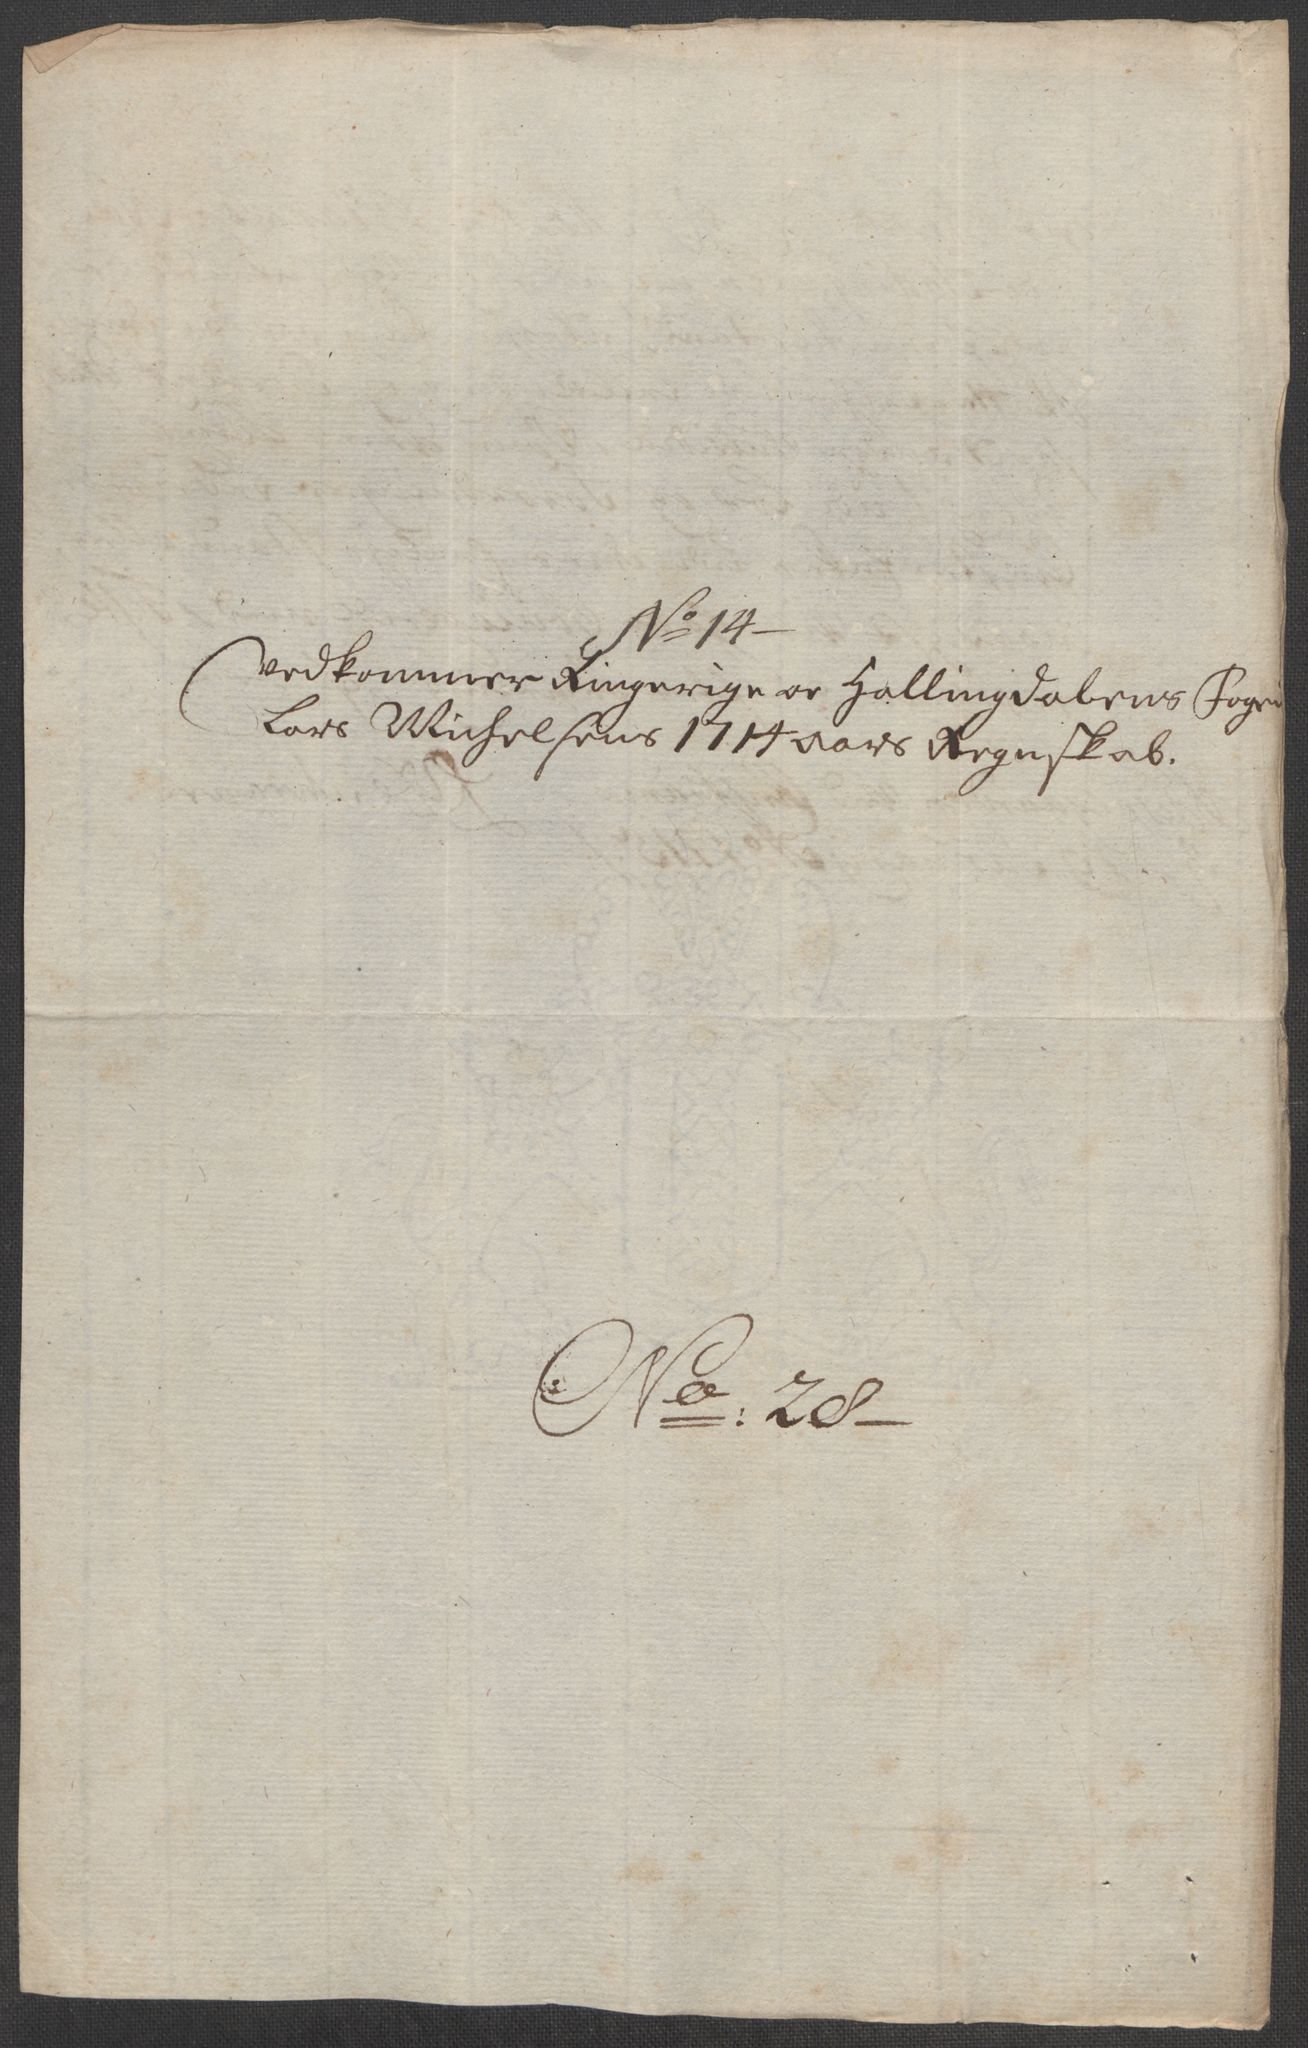 No 14
Vedkommer Ringerige oc Hallingdalens Foged
Lars Michelsens 1714 aars Regnskab.
No: 28